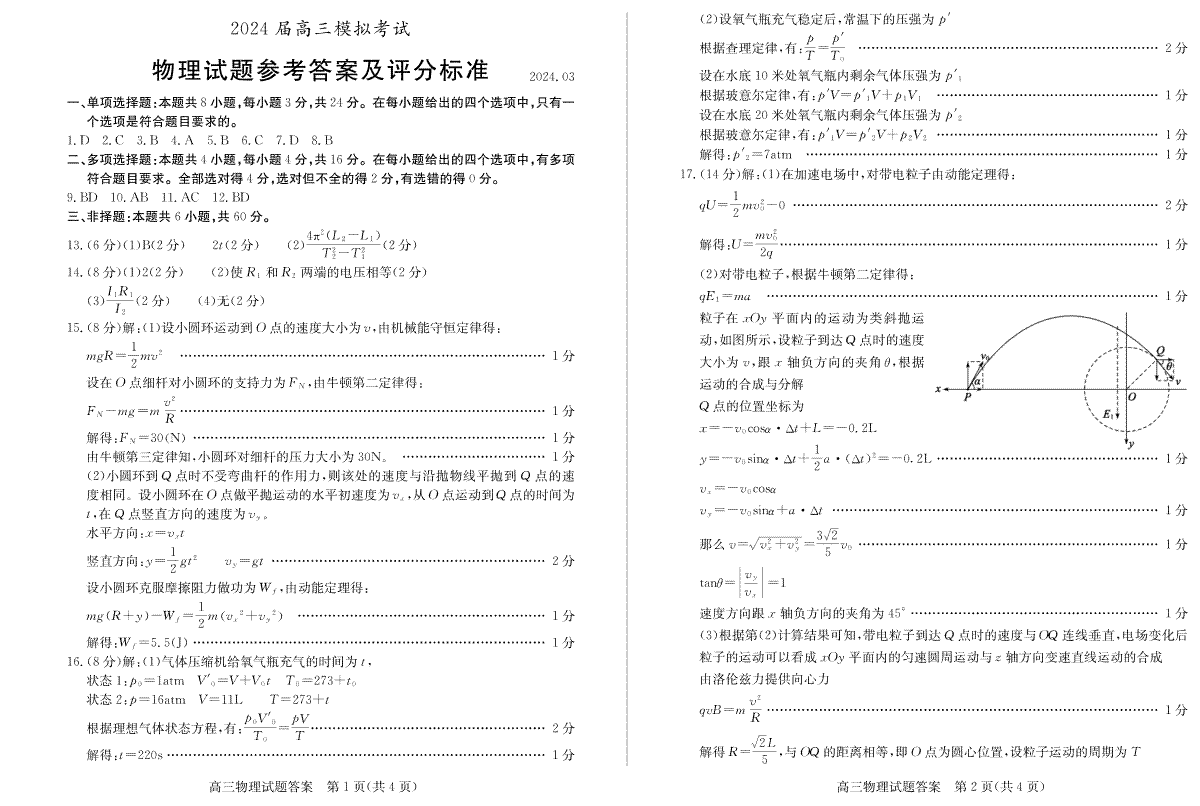 2024 届高三模拟考试
物理试题参考答案及评分标准 2024.03
一、单项选择题:本题共 8 小题,每小题 3 分,共 24 分。在每小题给出的四个选项中,只有一
个选项是符合题目要求的。
1.D 2.C 3.B 4.A 5.B 6.C 7.D 8.B
二、多项选择题:本题共 4 小题,每小题 4 分,共 16 分。在每小题给出的四个选项中,有多项
符合题目要求。全部选对得 4 分,选对但不全的得 2 分,有选错的得 0 分。
9.BD 10.AB 11.AC 12.BD
三、非择题:本题共 6 小题,共 60 分。
13.(6 分)(1)B(2 分) 2t(2 分) (2)4π²(L₂−L₁)/(T₂²−T₁²)(2 分)
14.(8 分)(1)2(2 分) (2)使 R₁ 和 R₂ 两端的电压相等(2 分)
(3)I₁R₁/I₂(2 分) (4)无(2 分)
15.(8 分)解:(1)设小圆环运动到 O 点的速度大小为 v,由机械能守恒定律得:
mgR=1/2mv² …… 1 分
设在 O 点细杆对小圆环的支持力为 F_N,由牛顿第二定律得:
F_N−mg=m v²/R …… 1 分
解得:F_N=30(N) …… 1 分
由牛顿第三定律知,小圆环对细杆的压力大小为 30N。 …… 1 分
(2)小圆环到 Q 点时不受弯曲杆的作用力,则该处的速度与沿抛物线平抛到 Q 点的速
度相同。设小圆环在 O 点做平抛运动的水平初速度为 vₓ,从 O 点运动到 Q 点的时间为
t,在 Q 点竖直方向的速度为 v_y。
水平方向:x=vₓt
竖直方向:y=1/2gt² v_y=gt …… 2 分
设小圆环克服摩擦阻力做功为 W_f,由动能定理得:
mg(R+y)−W_f=1/2m(vₓ²+v_y²) …… 1 分
解得:W_f=5.5(J) …… 1 分
16.(8 分)解:(1)气体压缩机给氧气瓶充气的时间为 t,
状态 1:p₀=1atm V′₀=V+V₀t T₀=273+t₀
状态 2:p=16atm V=11L T=273+t
根据理想气体状态方程,有:p₀V′₀/T₀=pV/T …… 2 分
解得:t=220s …… 1 分
高三物理试题答案 第 1 页(共 4 页)
(2)设氧气瓶充气稳定后,常温下的压强为 p′
根据查理定律,有:p/T=p′/T₀ …… 2 分
设在水底 10 米处氧气瓶内剩余气体压强为 p′₁
根据玻意尔定律,有:p′V=p′₁V+p₁V₁ …… 1 分
设在水底 20 米处氧气瓶内剩余气体压强为 p′₂
根据玻意尔定律,有:p′₁V=p′₂V+p₂V₂ …… 1 分
解得:p′₂=7atm …… 1 分
17.(14 分)解:(1)在加速电场中,对带电粒子由动能定理得:
qU=1/2mv₀²−0 …… 2 分
解得:U=mv₀²/2q …… 1 分
(2)对带电粒子,根据牛顿第二定律得:
qE₁=ma …… 1 分
粒子在 xOy 平面内的运动为类斜抛运
动,如图所示,设粒子到达 Q 点时的速度
大小为 v,跟 x 轴负方向的夹角 θ,根据
运动的合成与分解
Q 点的位置坐标为
x=−v₀cosα·Δt+L=−0.2L
y=−v₀sinα·Δt+1/2a·(Δt)²=−0.2L …… 1 分
vₓ=−v₀cosα
v_y=−v₀sinα+a·Δt …… 1 分
那么 v=√(vₓ²+v_y²)=3√2/5 v₀ …… 1 分
tanθ=|v_y/vₓ|=1
速度方向跟 x 轴负方向的夹角为 45° …… 1 分
x P v₀ α E₁ O Q θ v y
(3)根据第(2)计算结果可知,带电粒子到达 Q 点时的速度与 OQ 连线垂直,电场变化后
粒子的运动可以看成 xOy 平面内的匀速圆周运动与 z 轴方向变速直线运动的合成
由洛伦兹力提供向心力
qvB=m v²/R …… 1 分
解得 R=√2L/5,与 OQ 的距离相等,即 O 点为圆心位置,设粒子运动的周期为 T
高三物理试题答案 第 2 页(共 4 页)